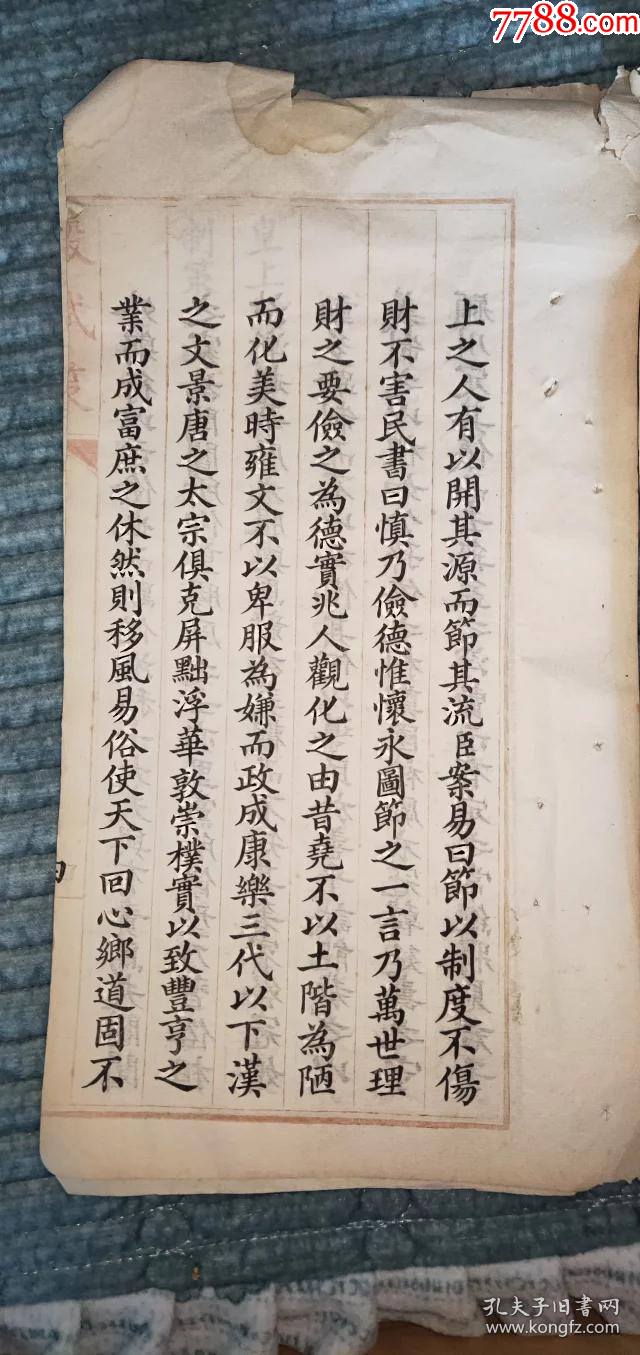 7788.com
上之人有以開其源而節其流臣案易曰節以制度不傷
財不害民書曰慎乃儉德惟懷永圖節之一言乃萬世理
財之要儉之為德實兆人觀化之由昔堯不以土階為陋
而化美時雍文不以卑服為嫌而政成康樂三代以下漢
之文景唐之太宗俱克屏黜浮華敦崇樸實以致豐亨之
業而成富庶之休然則移風易俗使天下回心鄉道固不
殿試策
孔夫子旧书网
www.kongfz.com